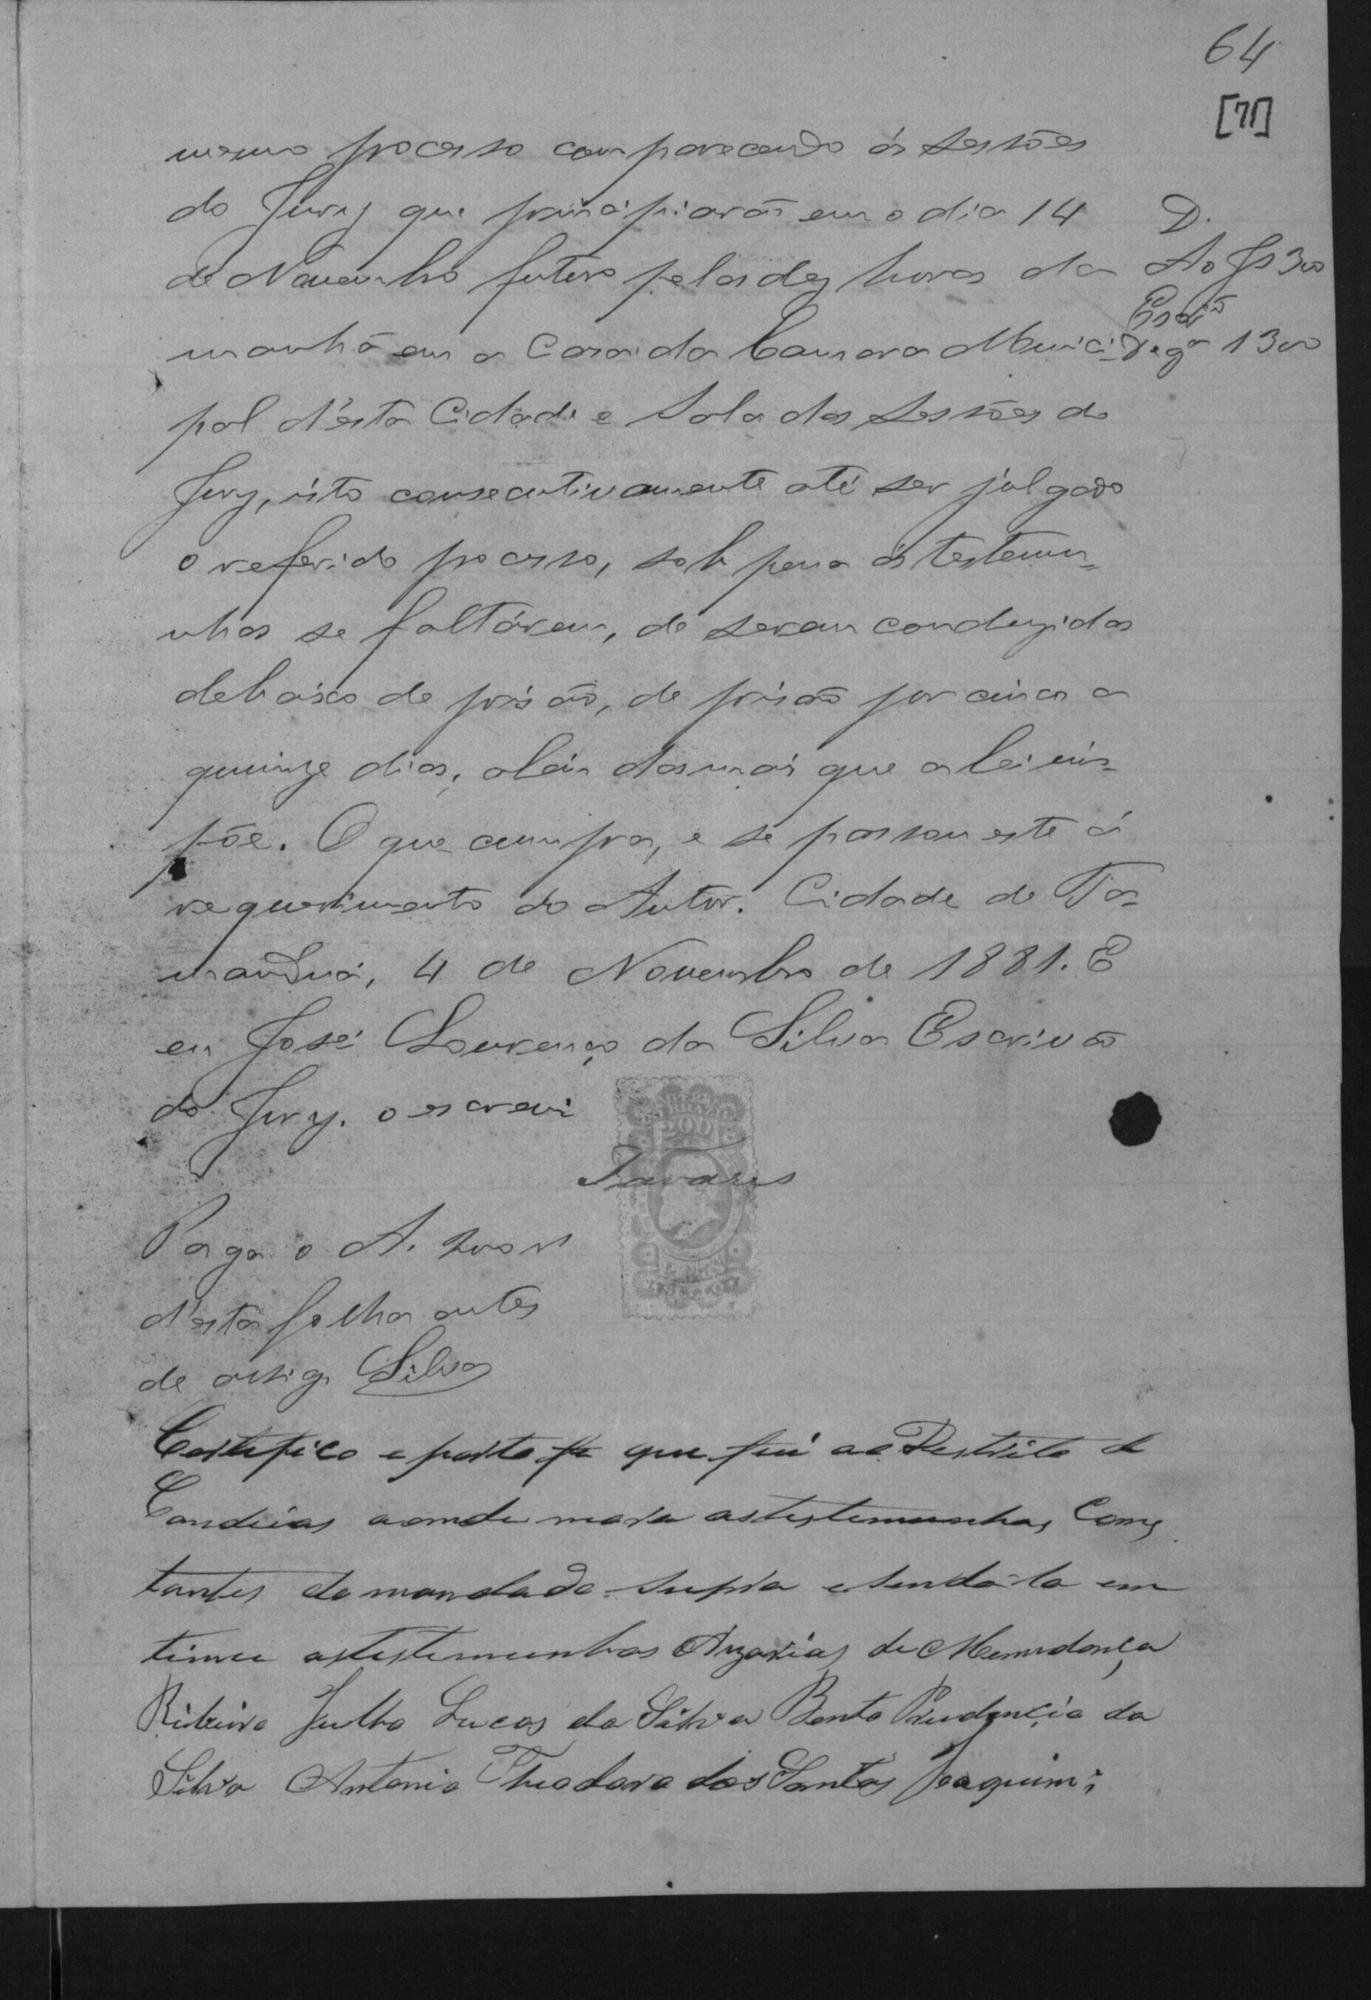 64
[71]
mesmo processo comparecendo ás sessões
do Jury que principiarão em o dia 14
de Novembro futuro pelas dez horas da
manhã em a Casa da Camara Munici-
pal d'esta Cidade e Sala das Sessões do
Jury, isto consecutivamente até ser julgado
o referido processo, sob pena ás testemu-
nhas se faltárem, de serem conduzidas
debaixo de prisão, de prisão por cinco a
quinze dias, alem das mais que a lei im-
põe. O que cumpra, e se passou este á
requerimento do Autor. Cidade de Ta-
manduá, 4 de Novembro de 1881. E
eu José Lourenço da Silva Escrivão
do Jury. o escrevi
Tavares
D.
Ao Js 300
Escr.ão
1300
200
Paga o A.
d'esta folha antes
de assig. Silva
Certefico e porto fe que fui ao Destrito de
Candeias aonde mora as testemunhas Cons
tantes do mandado supra e sendo la em
timei as testemunhas Azarias de Mendonça
Ribeiro Julho Lucas da Silva Bento Prudencio da
Silva Antonio Theodoro dos Santos Joaquim